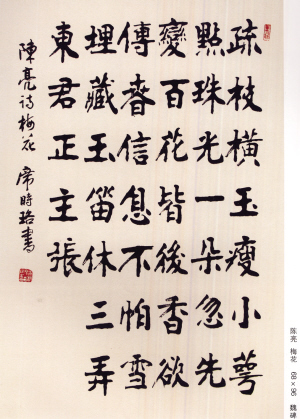 疏枝橫玉瘦小萼
點珠光一朵忽先
變百花皆後香欲
傳春信息不怕雪
埋藏玉笛休三弄
東君正主張
陳亮詩梅花 席時珞書
陳亮 梅花 69×96 魏碑